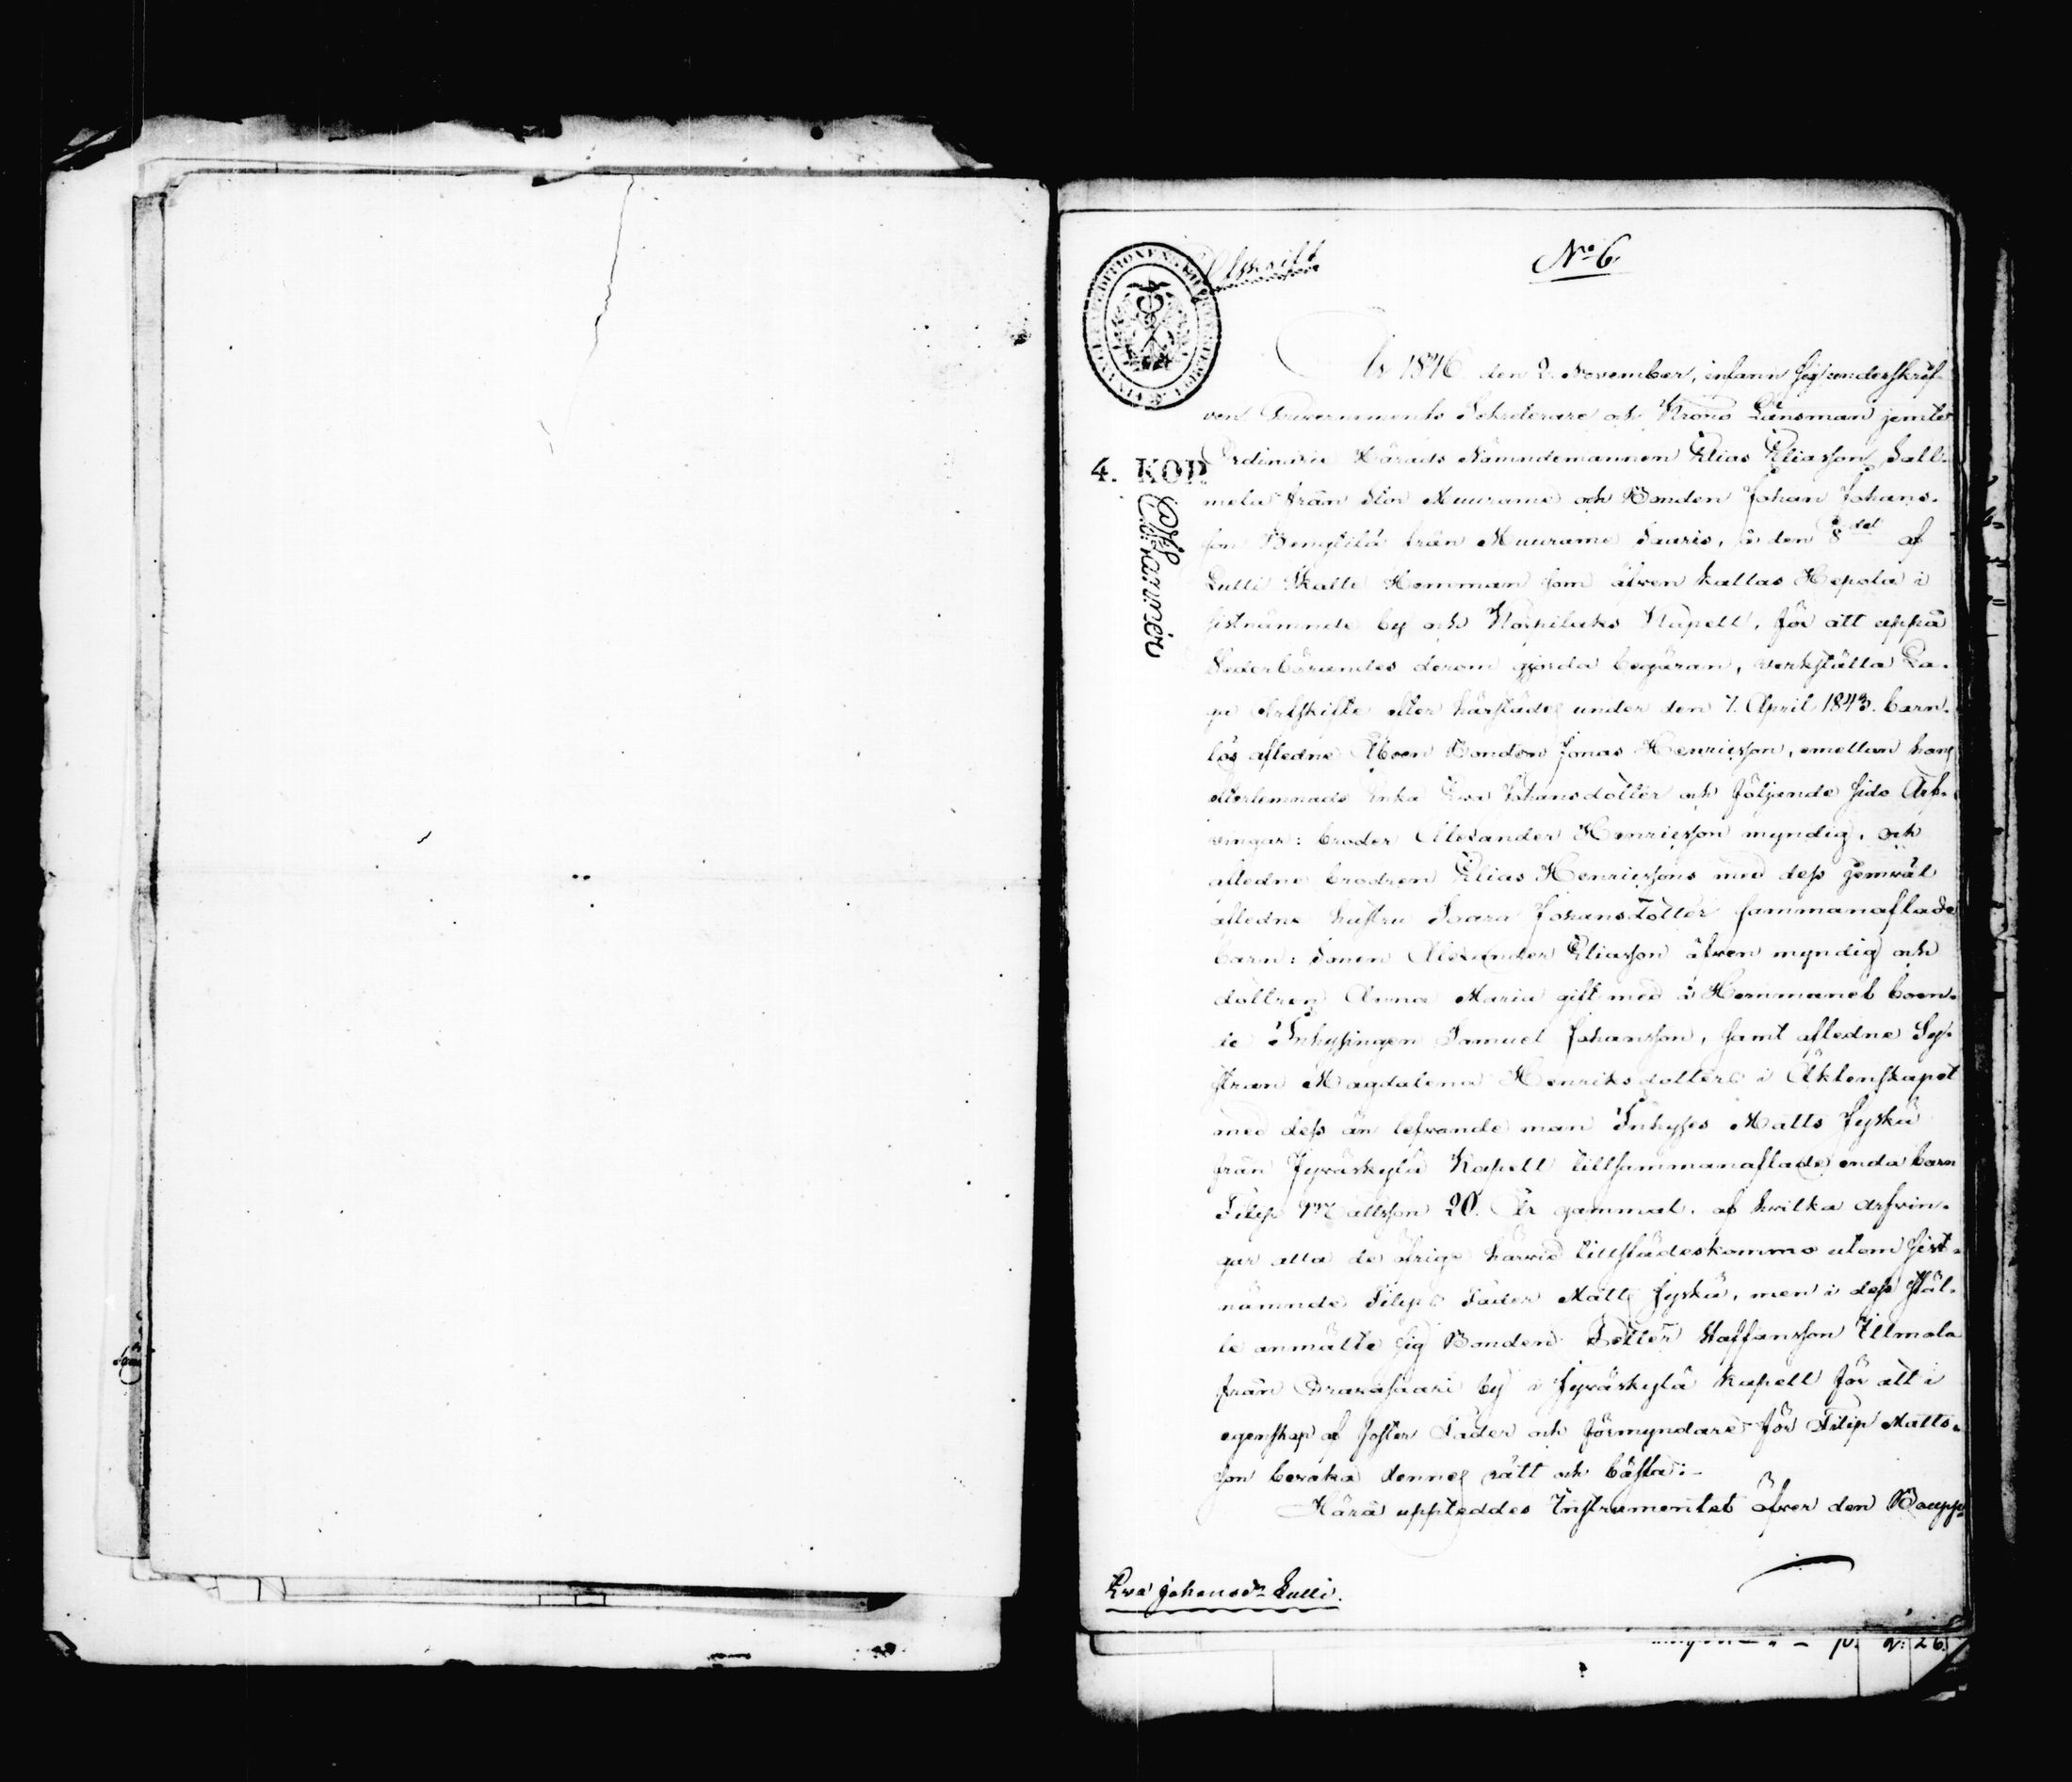 Afskrift
No 6.
4. KOP.
År 1846 den 2. November, infann sig underskrif-
ven Guvernements Sekreterare och Krono Länsman jemte
Ordinarie Härads Nämndemannen Elias Eliasson Sall-
mela från Stor Muurame och Bonden Johan Johans-
son Bengtilä från Muurame Sauris, å den 8de af
Lulli Skatte Hemman som äfven kallas Hepola i
sistnämnde by och Kapell, för att uppå
Vederbörandes derom gjorda begäran, verkställa La-
ga Arfskifte efter härstädes under den 7. April 1843. barn-
lös afledne Åboen Bonden Jonas Henricsson, emellan hans
efterlemnade Enka Eva Johansdotter och följande sido Arf-
vingar: broder Alexander Henricsson myndig, och
afledne brodren Elias Henricssons med dess jemväl
afledne hustru Saara Johansdotter sammanaflade
barn: sonen Alexander Eliasson äfven myndig och
dottren Anna Maria gift med å Hemmanet boen-
de Inhysingen Samuel Johansson, samt afledne Sys-
tran Magdalena Henriksdotters i Äktenskapet
med dess än lefvande man Inhyses Matts Jyskä
från Jyväskylä Kapell tillsammanaflade enda barn
Filip Mattsson 20. År gammal, af hvilka arfvin-
gar alla de öfrige härvid tillstädeskommo utom sist-
nämnde Filips Fader Matts Jyskä, men i dess stäl-
le anmälte sig Bonden Petter Staffansson Illmola
från by i Jyväskylä Kapell för att i
egenskap af foster Fader och förmyndare för Filip Matts-
son bevaka dennes rätt och bästa:-
Härå uppteddes Instrumentet öfver den Boupp-
Eva Johansdr Lulli.